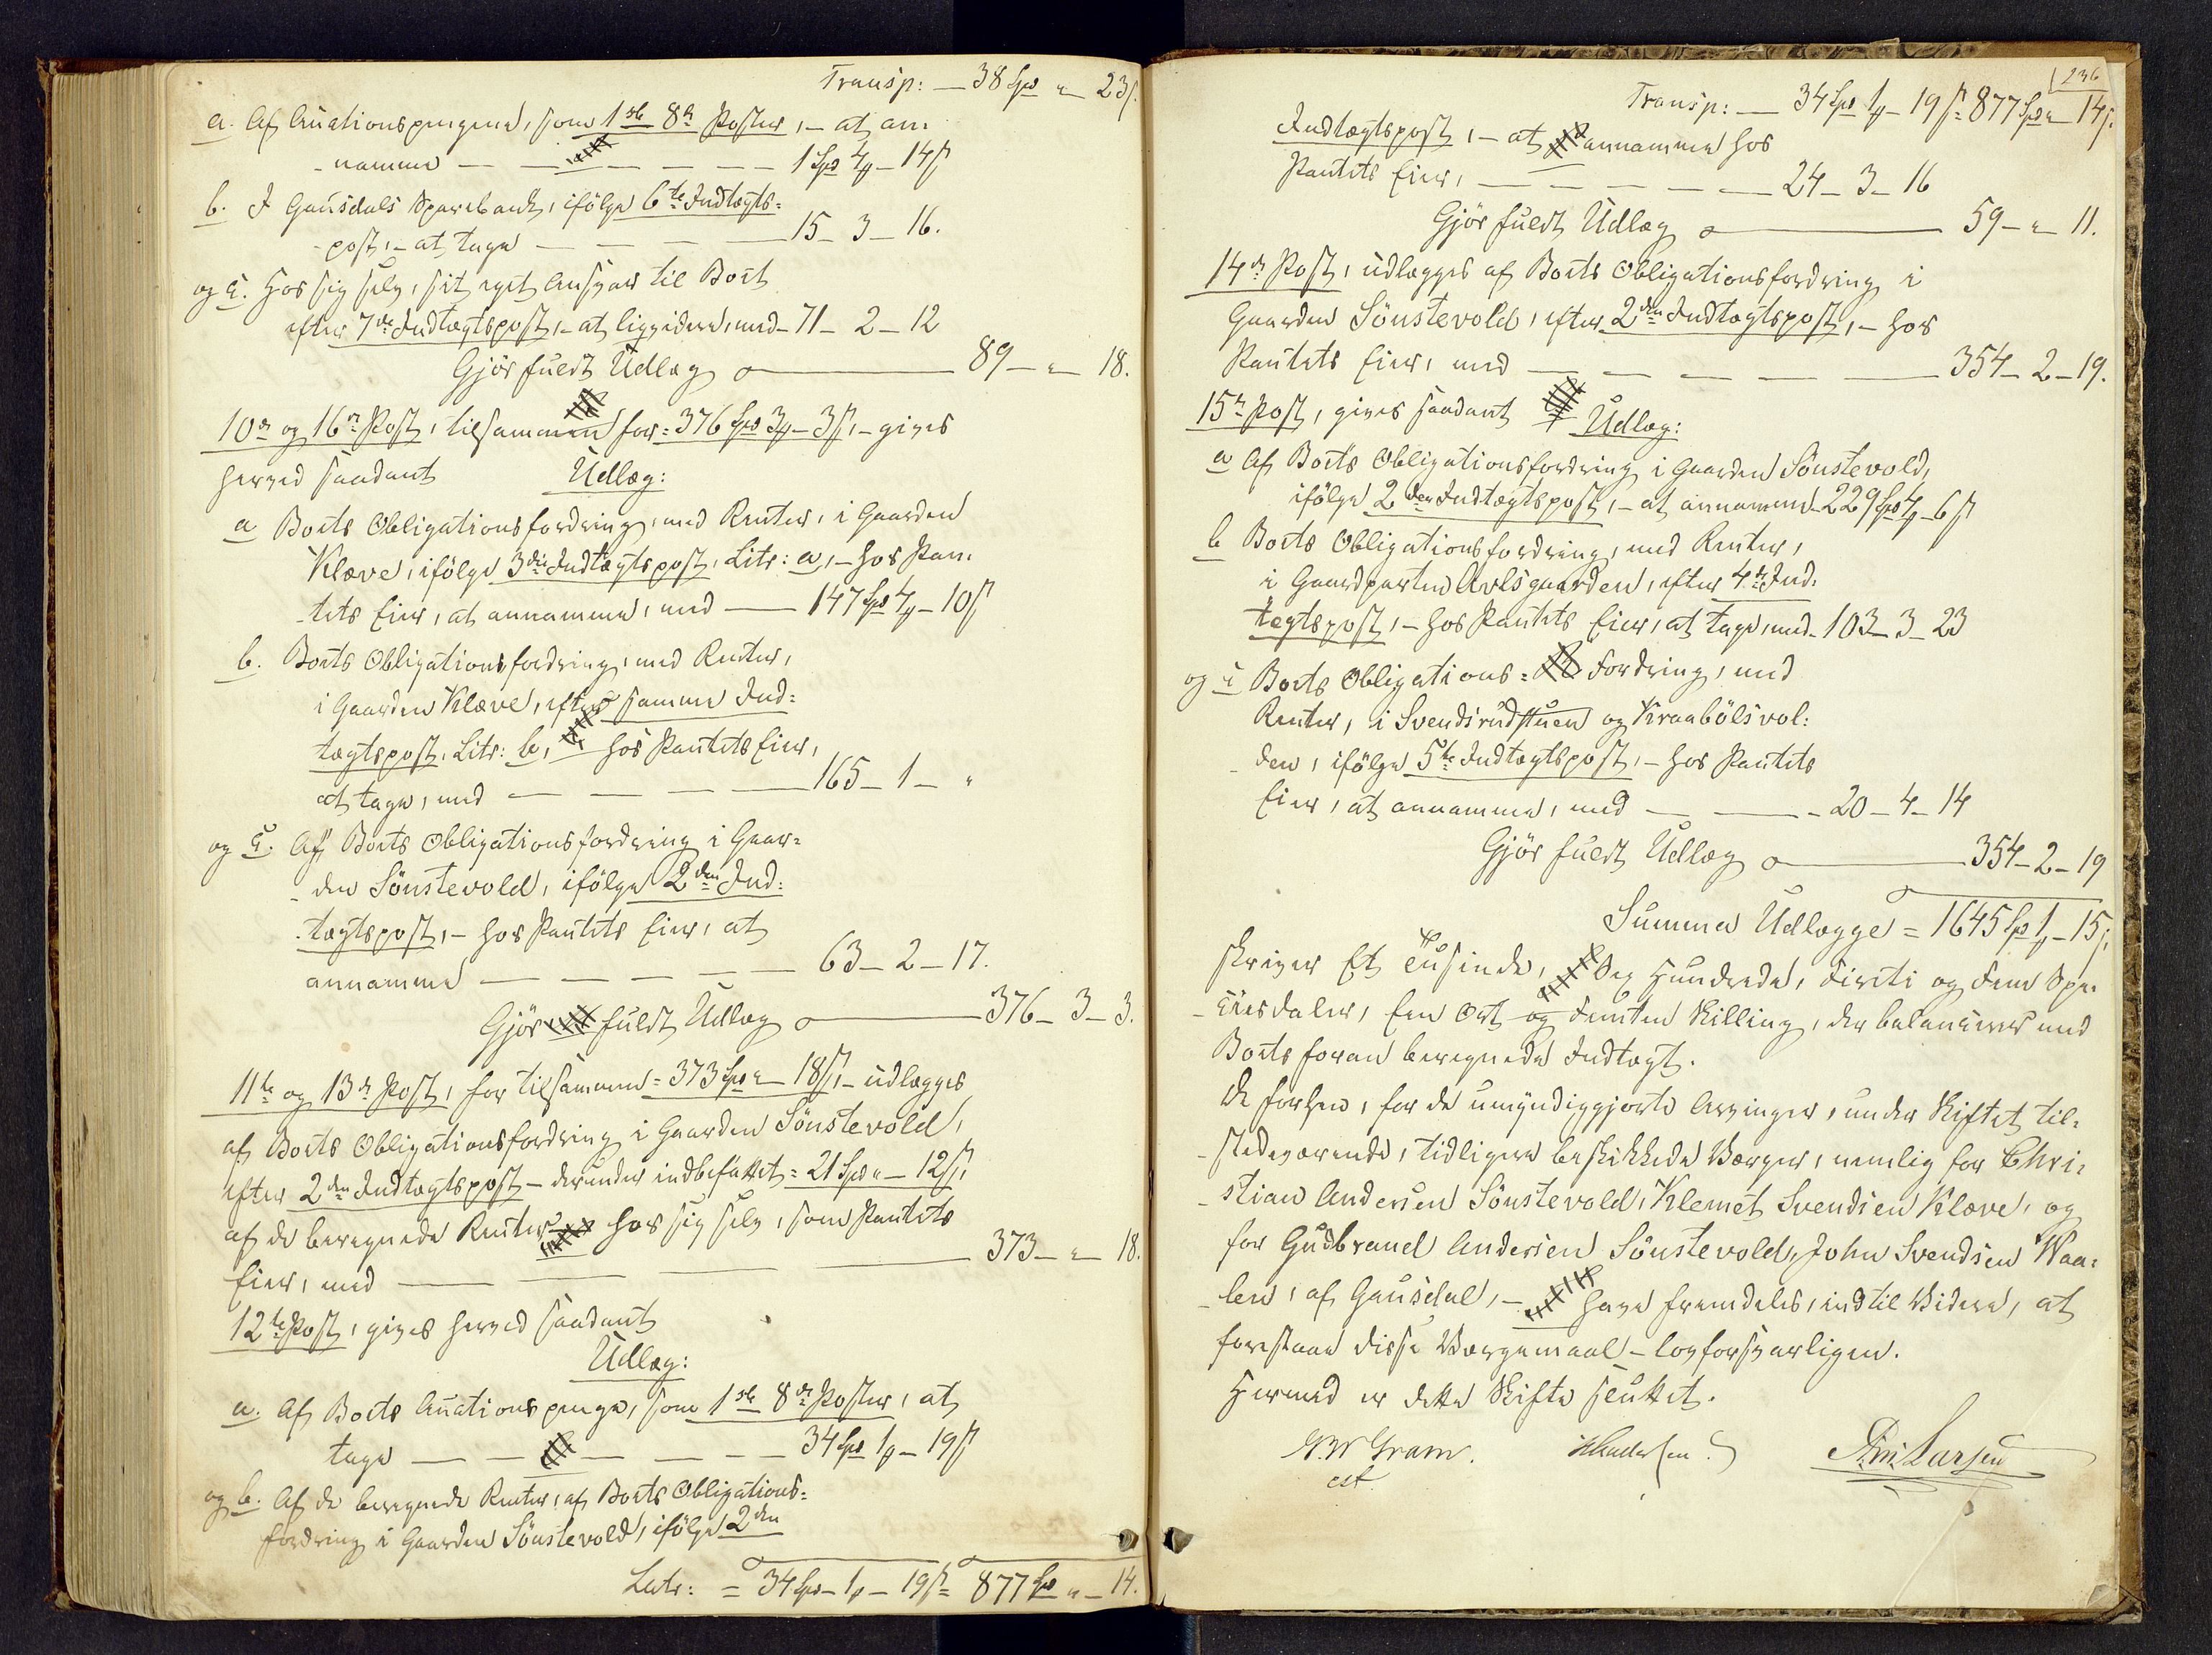 Transp: — 38 Spd " — 23ſ.
a. Af Auctionspengene, som 1ste 8de Poster, – at an-
namme — — — — — 1 Spd 4 – 14ſ
b. I Gausdals Sparebank, ifölge 6te Indtægts=
post, – at tage — — — — 15 – 3 – 16.
og c. Hos sig selv, sit eget Ansvar til Boet
efter 7de Indtægtspost, – at liqvidere, med – 71 – 2 – 12
Gjör fuldt Udlæg — 89 – " – 18.
10de og 16de Post, tilsammen for = 376 Spd 3 – 3ſ, – gives
herved saadant Udlæg:
a Boets Obligationsfordring, med Renter, i Gaarden
Klæve, ifölge 3die Indtægtspost, Litr: a, – hos Pan-
tets Eier, at annamme, med — 147 Spd 4 – 10ſ
b. Boets Obligationsfordring, med Renter,
i Gaarden Klæve, efter samme Ind=
tægtspost, Litr: b, – hos Pantets Eier,
at tage, med — — — — 165 – 1 – "
og c. Af Boets Obligationsfordring i Gaar=
den Sönstevold, ifölge 2den Ind=
tægtspost, – hos Pantets Eier, at
annamme — — — — — 63 – 2 – 17.
Gjör fuldt Udlæg — 376 – 3 – 3.
11te og 13de Post, for tilsammen = 373 Spd " – 18ſ, – udlægges
af Boets Obligationsfordring i Gaarden Sönstevold,
efter 2den Indtægtspost – derunder indbefattet = 21 Spd " – 12ſ,
af de beregnede Renter hos sig selv, som Pantets
Eier, med — — — — 373 – " – 18.
12te Post, gives herved saadant
Udlæg:
a. Af Boets Auctionspenge, som 1ste 8de Poster, at
tage — — — — — 34 Spd 1 – 19ſ
og b. Af de beregnede Renter, af Boets Obligations=
fordring i Gaarden Sönstevold, ifölge 2den
Latr: = 34 Spd – 1 – 19ſ = 877 Spd " – 14.
236
Transp: — 34 Spd 1 – 19ſ = 877 Spd " – 14ſ.
Indtægtspost, – at annamme hos
Pantets Eier, — — — — — 24 – 3 – 16
Gjör fuldt Udlæg — 59 – " – 11.
14de Post, udlægges af Boets Obligationsfordring i
Gaarden Sönstevold, efter 2den Indtægtspost, – hos
Pantets Eier, med — — — — — 354 – 2 – 19.
15de Post, gives saadant Udlæg:
a Af Boets Obligationsfordring i Gaarden Sönstevold,
ifölge 2den Indtægtspost, – at annamme – 229 Spd 4 – 6ſ
b Boets Obligationsfordring, med Renter,
i Gaardparten Avlsgaarden, efter 4de Ind-
tægtspost, – hos Pantets Eier, at tage, med – 103 – 3 – 23
og c Boets Obligations = Fordring, med
Renter, i Svendsrudstuen og Kraabölsvol=
den, ifölge 5te Indtægtspost, – hos Pantets
Eier, at annamme, med — — 20 – 4 – 14
Gjör fuldt Udlæg — 354 – 2 – 19
Summa Udlægge = 1645 Sp 1 – 15ſ.
skriver Et Tusinde, Sex Hundrede, Firti og Fem Spe-
ciesdaler, Een Ort og Femten Skilling, der balancerer med
Boets foran beregnede Indtægt.
De forhen, for de umyndiggjorte Arvinger, under Skiftet til-
stedeværende, tidligere beskikkede Værger, nemlig for Chri-
stian Andersen Sönstevold, Klemet Svendsen Klæve, og
for Gudbrand Andersen Sönstevold, John Svendsen Waa-
len, af Gausdal, – have fremdeles, indtil Videre, at
forestaae disse Værgemaal – lovforsvarligen.
Hermed er dette Skifte sluttet.
Gram. Larsen
cst